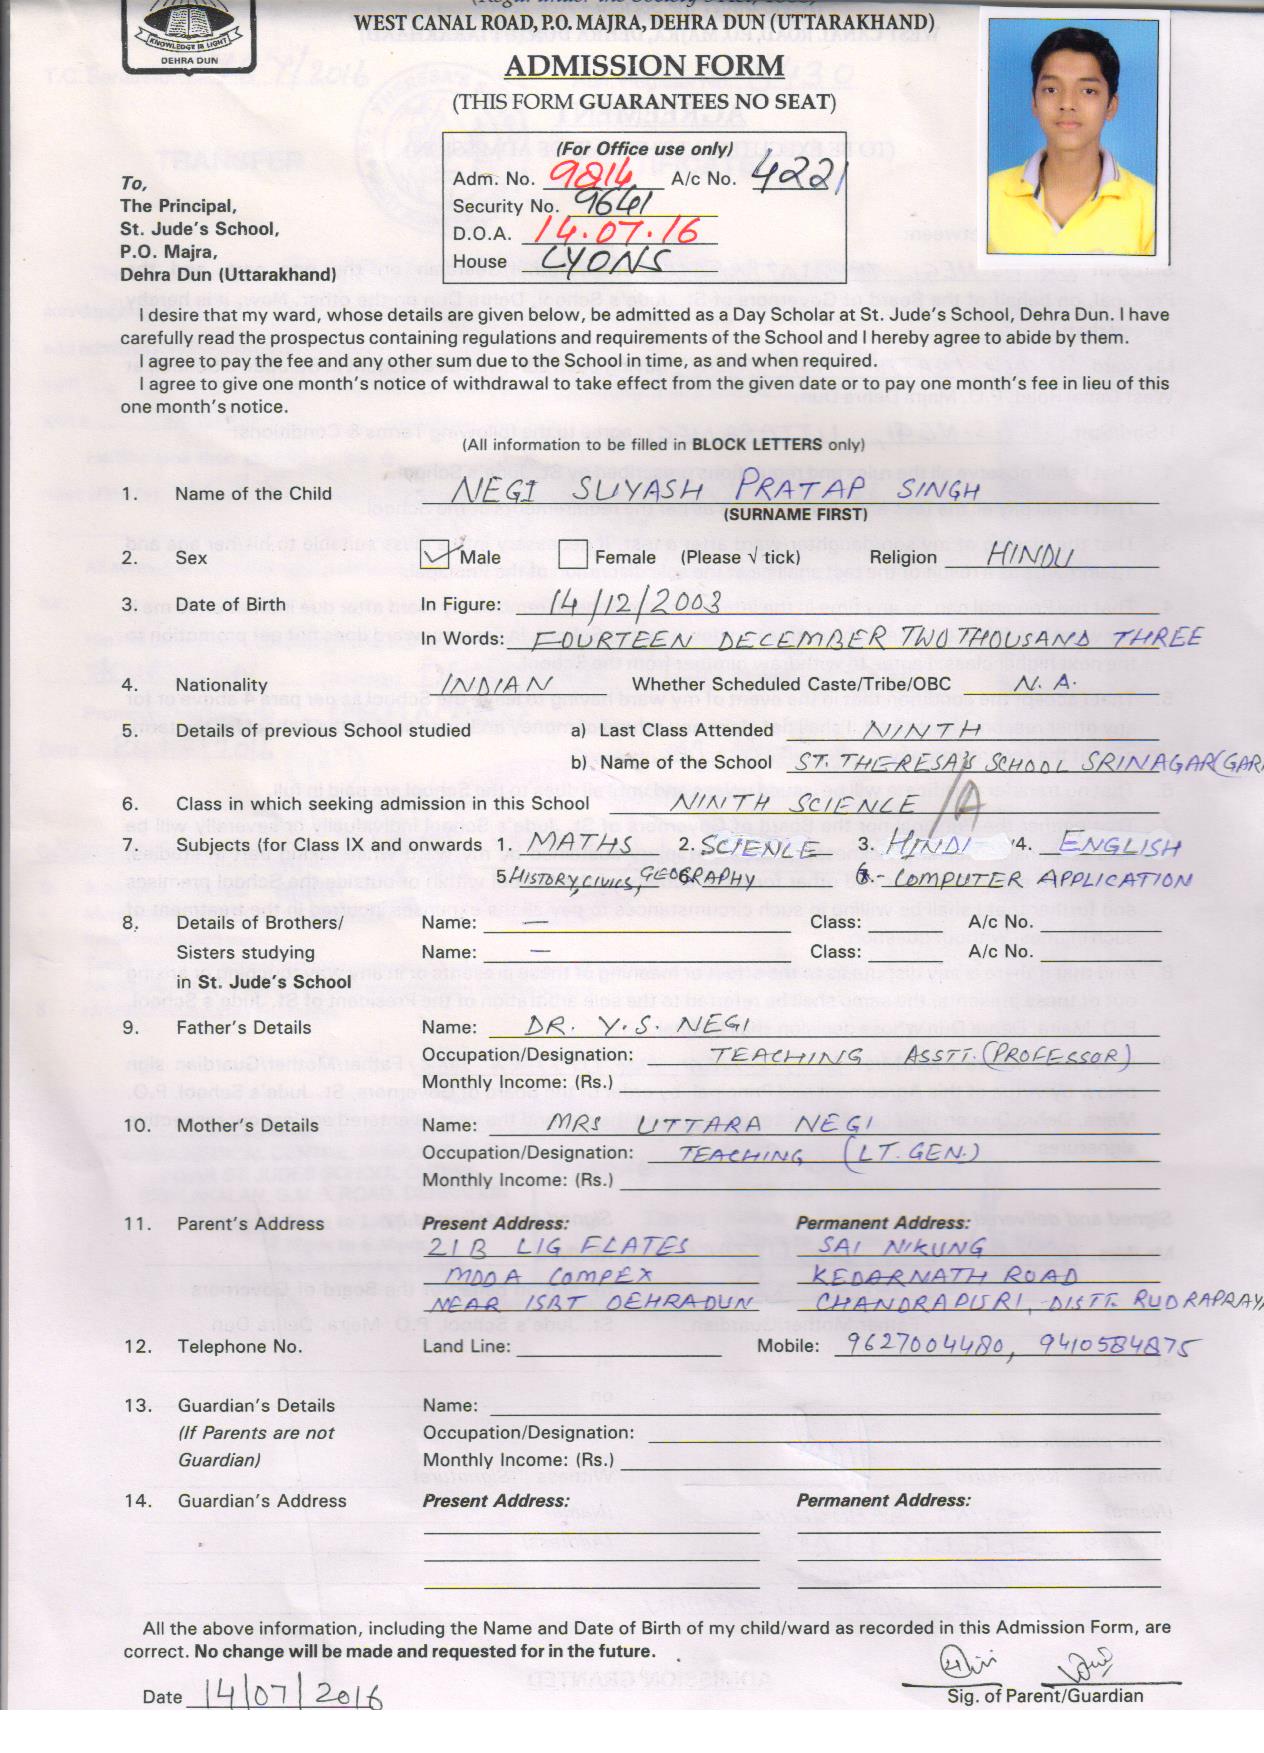 KNOWLEDGE IS LIGHT
DEHRA DUN
WEST CANAL ROAD, P.O. MAJRA, DEHRA DUN (UTTARAKHAND)
ADMISSION FORM
(THIS FORM GUARANTEES NO SEAT)
(For Office use only)
Adm. No. 9814 A/c No. 4221
Security No. 9641
D.O.A. 14.07.16
House LYONS
To,
The Principal,
St. Jude's School,
P.O. Majra,
Dehra Dun (Uttarakhand)
I desire that my ward, whose details are given below, be admitted as a Day Scholar at St. Jude's School, Dehra Dun. I have
carefully read the prospectus containing regulations and requirements of the School and I hereby agree to abide by them.
I agree to pay the fee and any other sum due to the School in time, as and when required.
I agree to give one month's notice of withdrawal to take effect from the given date or to pay one month's fee in lieu of this
one month's notice.
(All information to be filled in BLOCK LETTERS only)
1. Name of the Child NEGI SUYASH PRATAP SINGH
(SURNAME FIRST)
2. Sex Male Female (Please √ tick) Religion HINDU
3. Date of Birth In Figure: 14/12/2003
In Words: FOURTEEN DECEMBER TWO THOUSAND THREE
4. Nationality INDIAN Whether Scheduled Caste/Tribe/OBC N.A.
5. Details of previous School studied a) Last Class Attended NINTH
b) Name of the School ST. THERESA'S SCHOOL SRINAGAR (GAR
6. Class in which seeking admission in this School NINTH SCIENCE /A
7. Subjects (for Class IX and onwards 1. MATHS 2. SCIENCE 3. HINDI 4. ENGLISH
5 HISTORY, CIVICS, GEOGRAPHY 6.- COMPUTER APPLICATION
8. Details of Brothers/ Name: — Class: A/c No.
Sisters studying Name: — Class: A/c No.
in St. Jude's School
9. Father's Details Name: DR. Y.S. NEGI
Occupation/Designation: TEACHING ASSTT. (PROFESSOR)
Monthly Income: (Rs.)
10. Mother's Details Name: MRS UTTARA NEGI
Occupation/Designation: TEACHING (LT. GEN.)
Monthly Income: (Rs.)
11. Parent's Address Present Address: Permanent Address:
21B LIG FLATES SAI NIKUNG
MDDA COMPEX KEDARNATH ROAD
NEAR ISBT DEHRADUN CHANDRAPURI, DISTT. RUDRAPRAYA
12. Telephone No. Land Line: Mobile: 9627004480, 9410584875
13. Guardian's Details Name:
(If Parents are not Occupation/Designation:
Guardian) Monthly Income: (Rs.)
14. Guardian's Address Present Address: Permanent Address:
All the above information, including the Name and Date of Birth of my child/ward as recorded in this Admission Form, are
correct. No change will be made and requested for in the future.
Date 14/07/2016 Sig. of Parent/Guardian